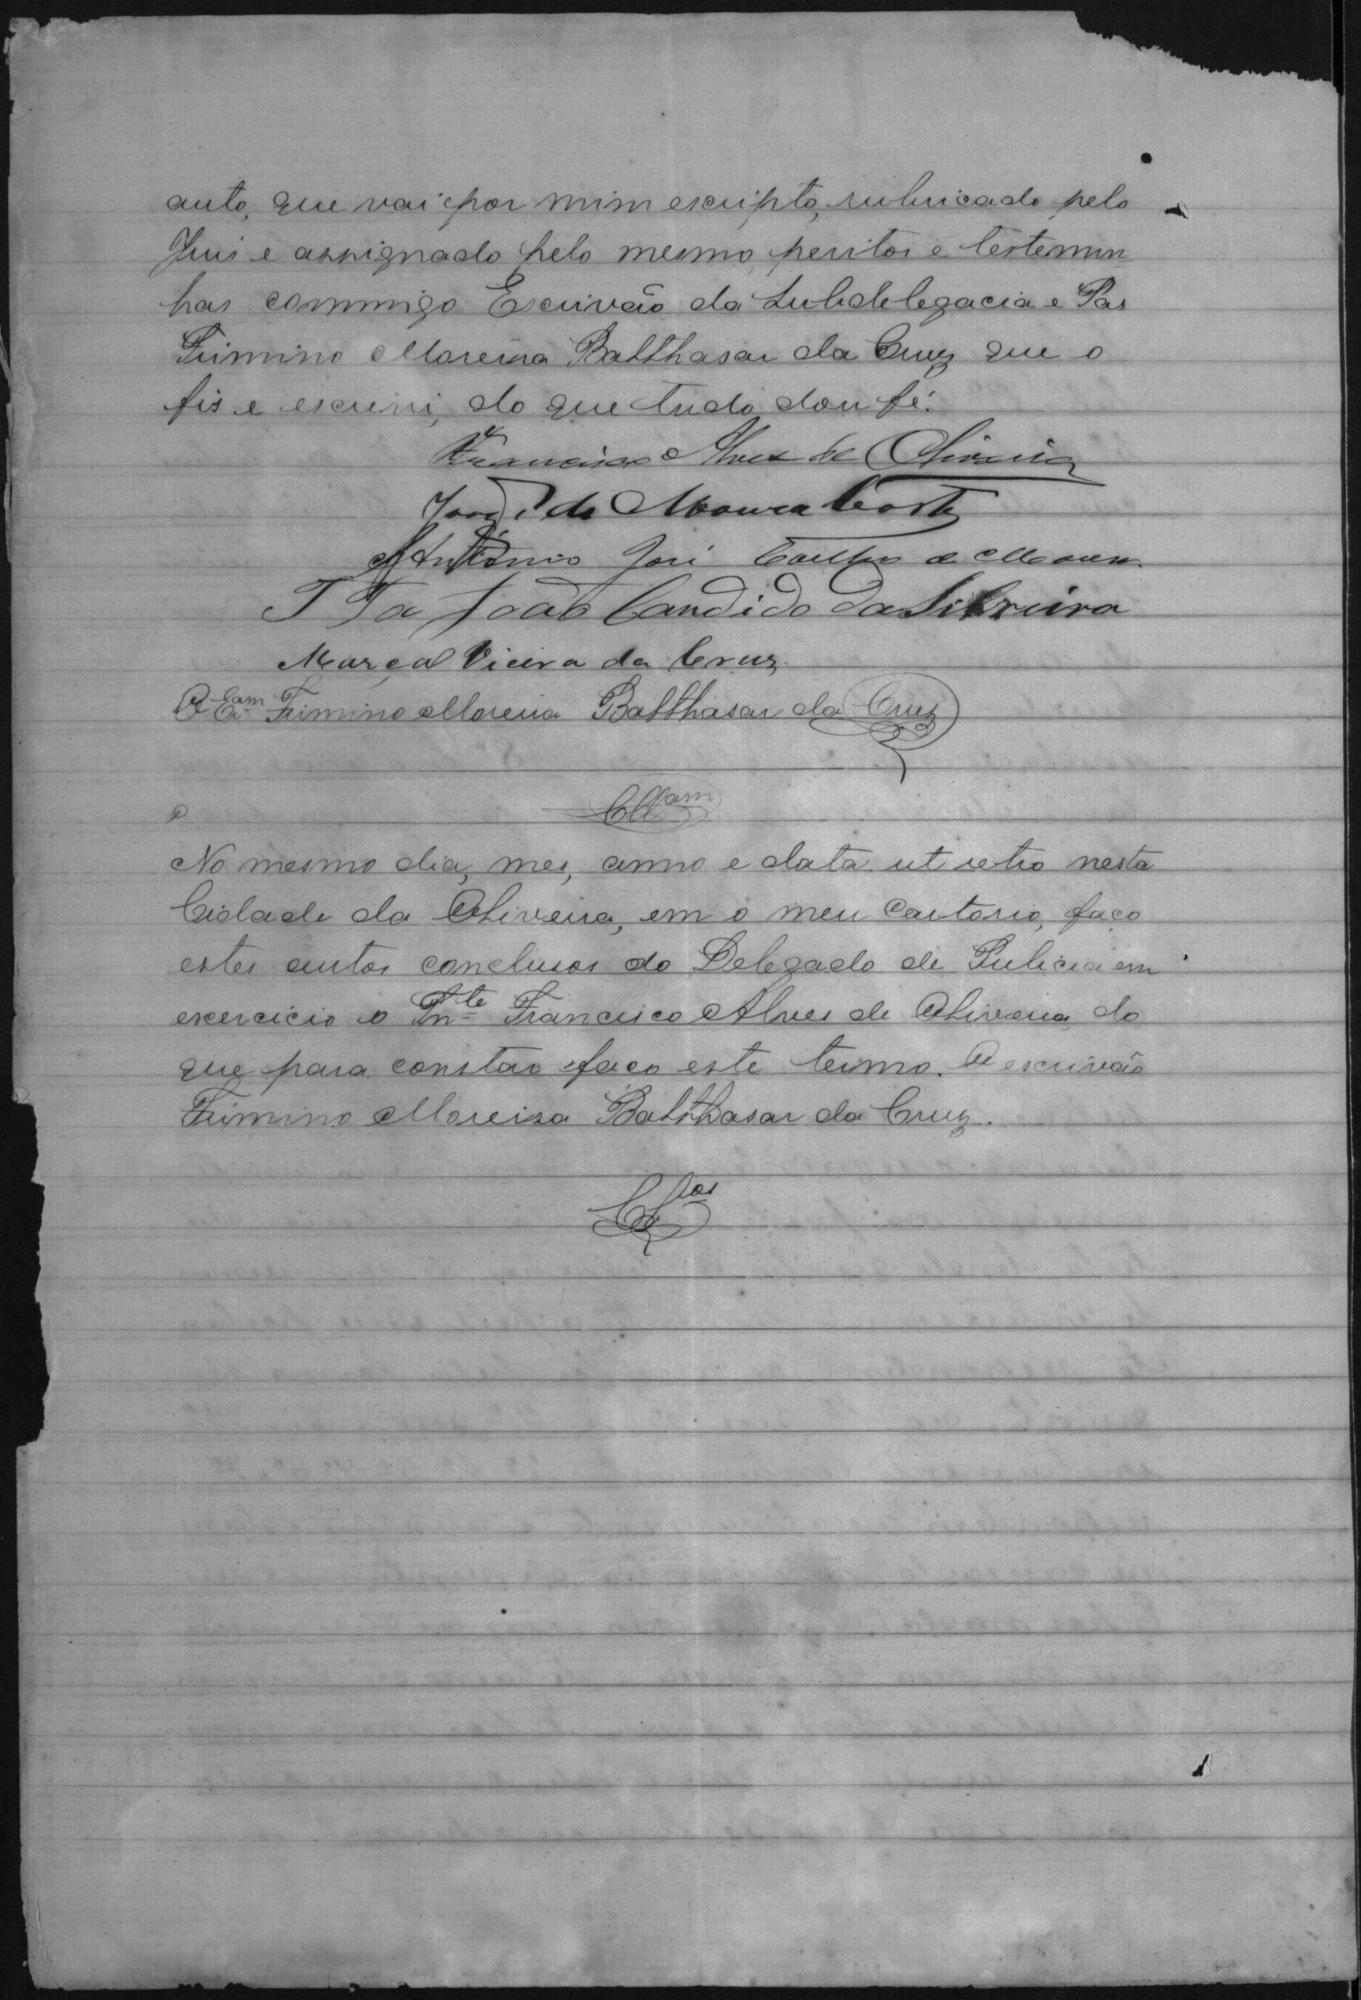 auto, que vai por mim escripto, rubricado pelo
Juis e assignado pelo mesmo, peritos e testemun
has commigo Escrivão da Subdelegacia e Pas
Firmino Moreira Balthasar da Crus que o
fis e escrevi, do que tudo dou fé.
Francisco Alves de Oliveira
de Moura Costa
Antonio José Coelho de Moura
João Candido da Silveira
Marçal Vieira da Crus
O Eam Firmino Moreira Balthasar da Crus
Cllam
No mesmo dia, mes, anno e data ut retro nesta
Cidade da Oliveira, em o meu Cartorio, faço
estes autos conclusos do Delegado de Pulicia em
exercicio o Tnte Francisco Alves de Oliveira do
que para constar faço este termo. O escrivão
Firmino Moreira Balthasar da Crus.
Clsos